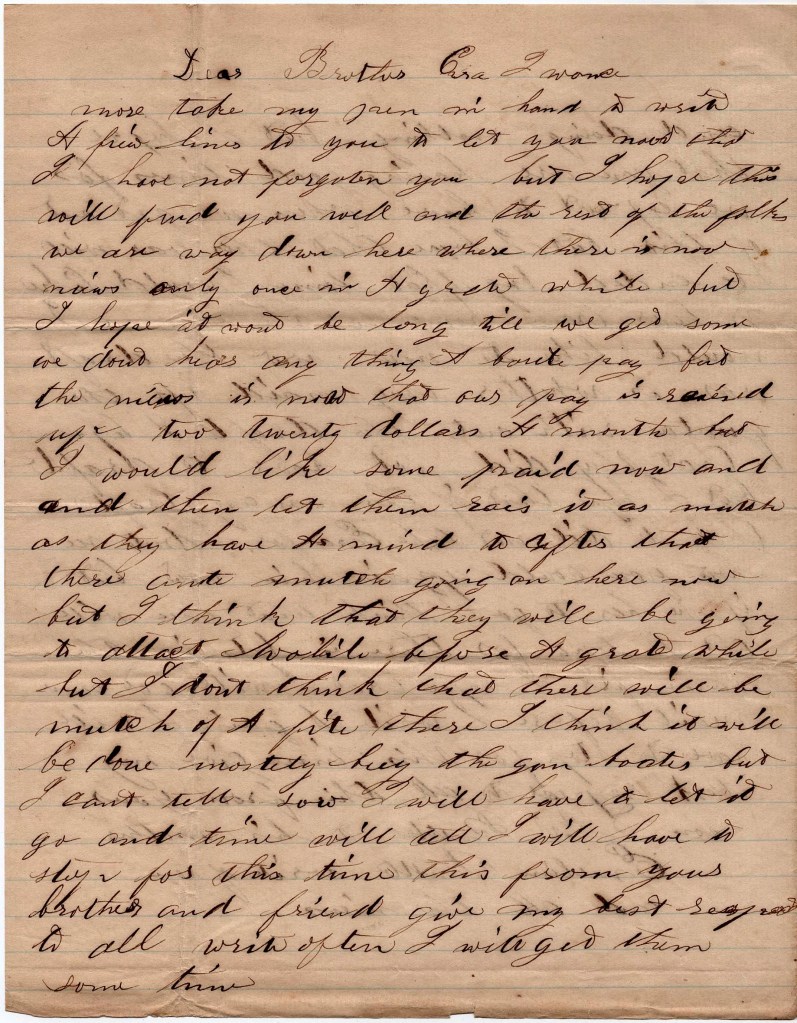 Dear Brother Era I wonce
more take my pen in hand to write
A few lines to you to let you now that
I have not forgoten you but I hope this
will find you well and the rest of the folks
we are way down here where there is now
niews only once in A grate while but
I hope it wont be long till we get some
we dont hear any thing A boute pay but
the niews is now that our pay is raised
up two twenty dollars A month but
I would like some praid now and
and then let them rais it as mutch
as they have A mind to after that
there ante mutch going on here now
but I think that they will be going
to attact Mobile before A grate while
but I dont think that there will be
mutch of A fite there I think it will
be done mostely buy the gun boates but
I cant tell sow I will have to let it
go and time will tell I will have to
stop for this time this from your
brother and friend give my best respects
to all write often I will get them
some time